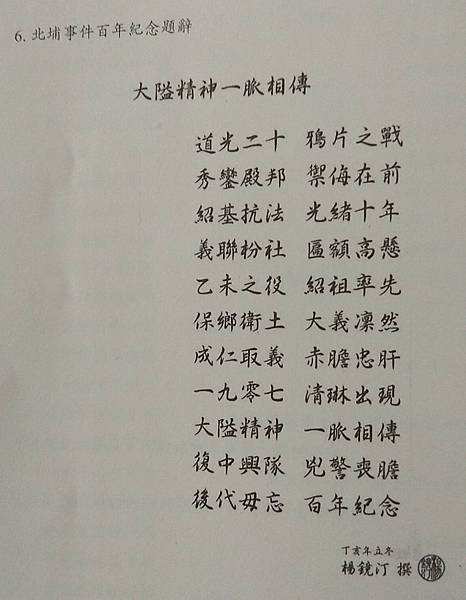 6. 北埔事件百年紀念題辭
大隘精神一脈相傳
道光二十 鴉片之戰
秀鑾殿邦 禦侮在前
紹基抗法 光緒十年
義聯枌社 匾額高懸
乙未之役 紹祖率先
保鄉衛土 大義凜然
成仁取義 赤膽忠肝
一九零七 清琳出現
大隘精神 一脈相傳
復中興隊 兇警喪膽
後代毋忘 百年紀念
丁亥年立冬
楊鏡汀 撰